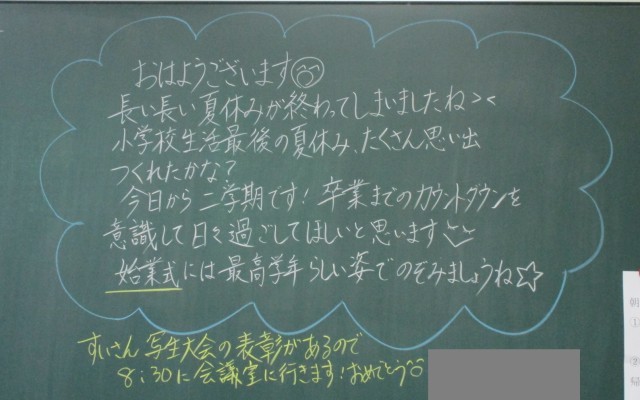 おはようございます
長い長い夏休みが終わってしまいましたね><
小学校生活最後の夏休み、たくさん思い出
つくれたかな?
今日から二学期です!卒業までのカウントダウンを
意識して日々過ごしてほしいと思います
始業式には最高学年らしい姿でのぞみましょうね☆
すいさん写生大会の表彰があるので
8:30に会議室に行きます!おめでとう^^
朝
①
②
帰